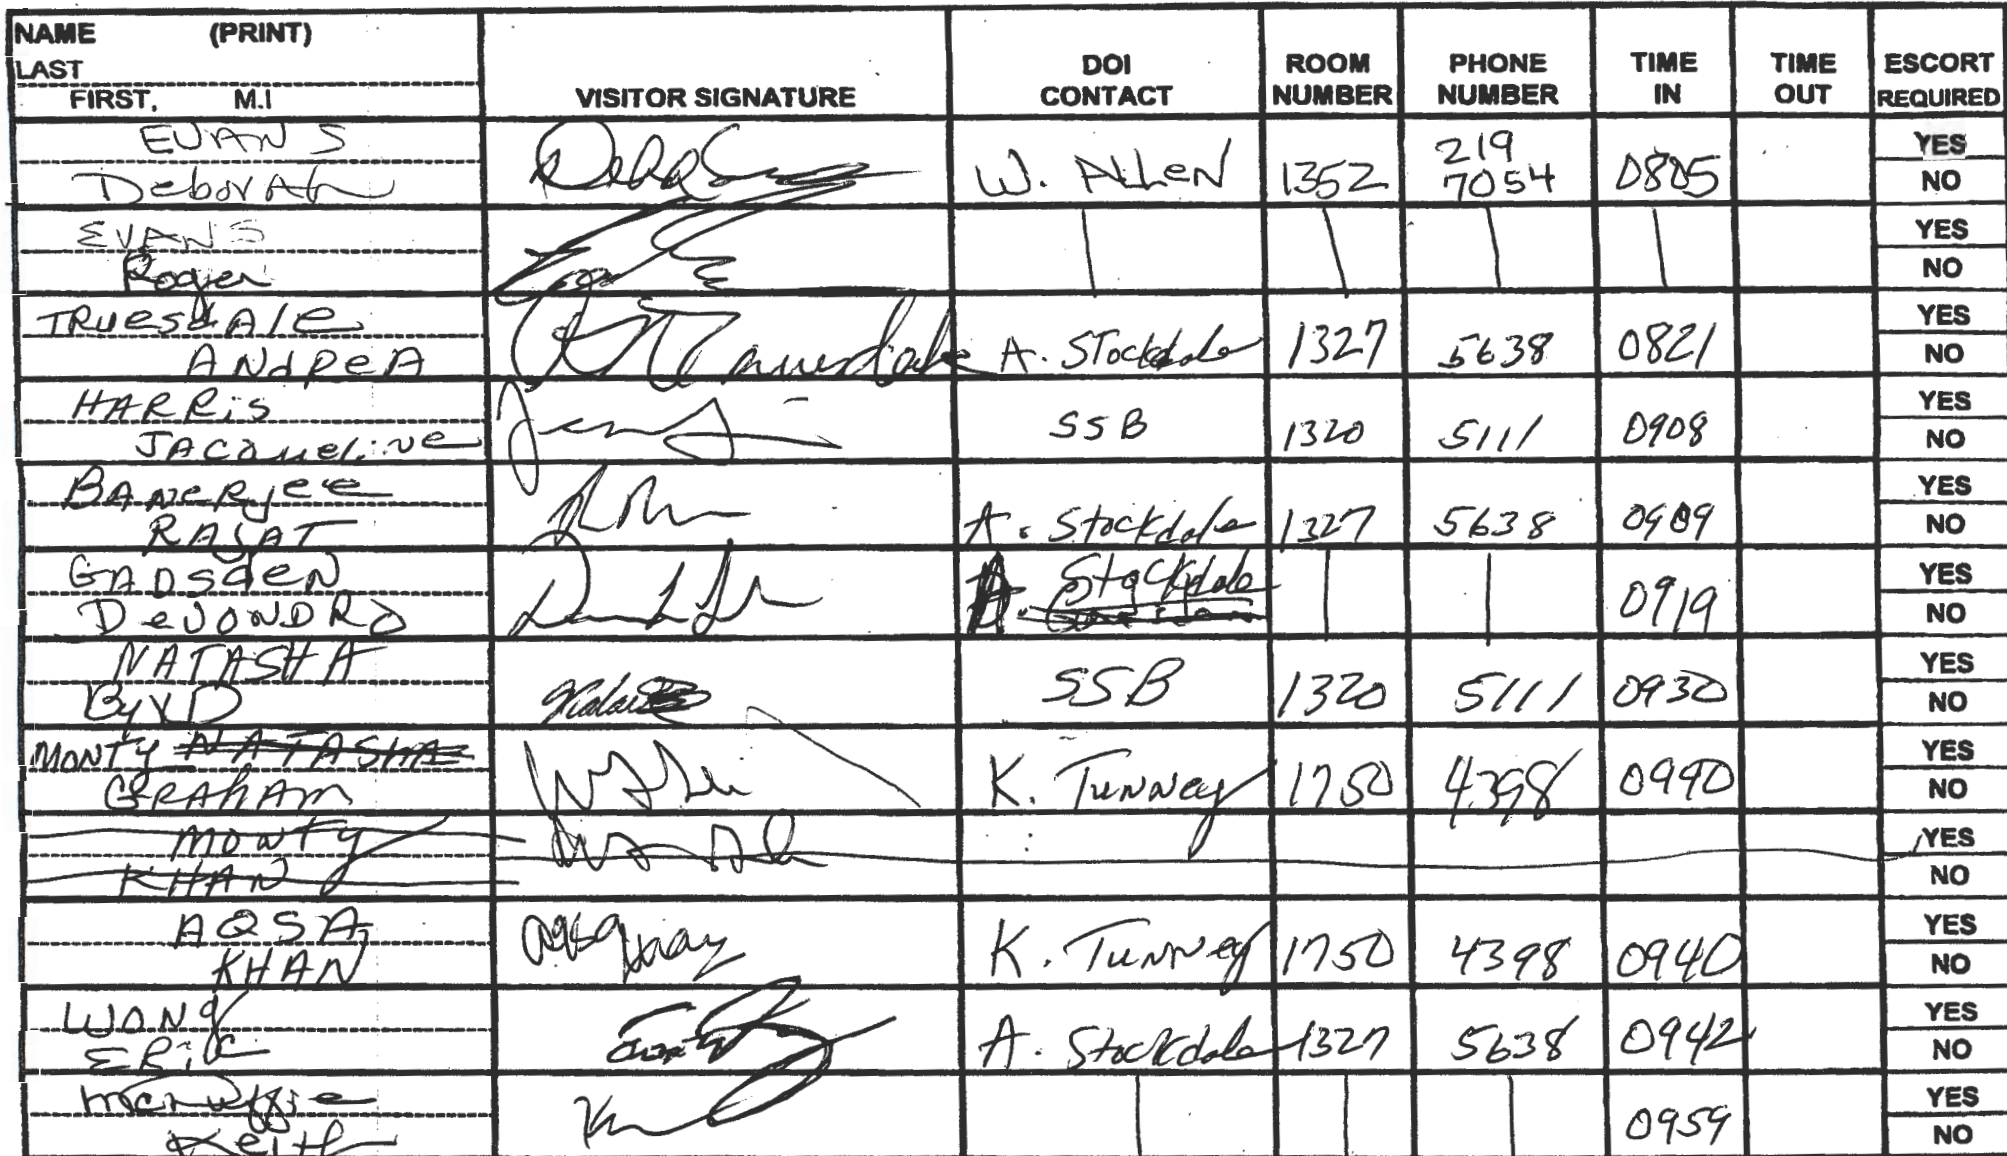 NAME (PRINT)
LAST
FIRST, M.I
VISITOR SIGNATURE
DOI CONTACT
ROOM NUMBER
PHONE NUMBER
TIME IN
TIME OUT
ESCORT REQUIRED
EVANS
Deborah
W. Allen 1352 219 7054 0805 YES NO
EVANS
Roger
YES NO
Truesdale
Andrea
A. Stockdale 1327 5638 0821 YES NO
HARRis
JACqueline
SSB 1320 5111 0908 YES NO
Banerjee
RAJAT
A. Stockdale 1327 5638 0909 YES NO
GADSden
DeVONDRA
A. Stockdale 0919 YES NO
NATASHA
ByrD
SSB 1320 5111 0930 YES NO
MONTY NATASHA
GRAham
K. Tunney 1750 4398 0940 YES NO
MONTY
KHAN
YES NO
AQSA
KHAN
K. Tunney 1750 4398 0940 YES NO
WONg
ERiC
A. Stockdale 1327 5638 0942 YES NO
Keith
0959 YES NO